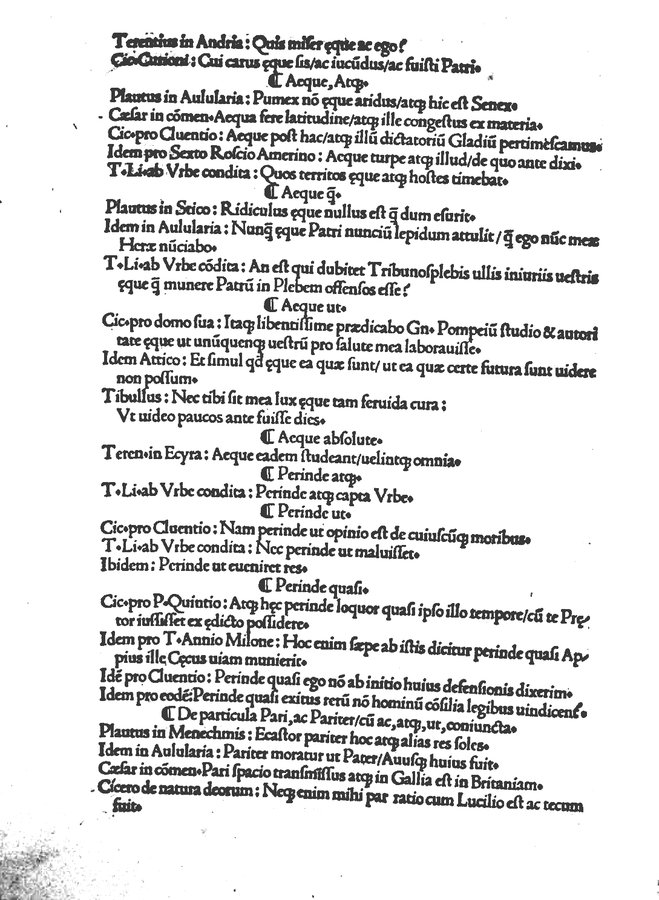 Terentius in Andria : Quis miſer ęque ac ego?
Cic•Curioni : Cui carus ęque ſis/ac iucūdus/ac fuiſti Patri•
¶ Aeque, Atqꝫ•
Plautus in Aulularia : Pumex nō ęque aridus/atqꝫ hic eſt Senex•
Cæſar in cōmen•Aequa fere latitudine/atqꝫ ille congeſtus ex materia•
Cic•pro Cluentio : Aeque poſt hac/atqꝫ illū dictatoriū Gladiū pertimeſcamus•
Idem pro Sexto Roſcio Amerino : Aeque turpe atqꝫ illud/de quo ante dixi•
T•Li•ab Vrbe condita : Quos territos ęque atqꝫ hoſtes timebat•
¶ Aeque q̄•
Plautus in Stico : Ridiculus ęque nullus eſt q̄ dum eſurit•
Idem in Aulularia : Nunq̄ ęque Patri nunciū lepidum attulit/q̄ ego nūc meæ
Heræ nūciabo•
T•Li•ab Vrbe cōdita : An eſt qui dubitet Tribunoſplebis ullis iniuriis ueſtris
ęque q̄ munere Patrū in Plebem offenſos eſſe?
¶ Aeque ut•
Cic•pro domo ſua : Itaqꝫ libentiſſime prædicabo Gn• Pompeiū ſtudio & autori
tate ęque ut unūquenqꝫ ueſtrū pro ſalute mea laborauiſſe•
Idem Attico : Et ſimul qd ęque ea quæ ſunt/ ut ea quæ certe futura ſunt uidere
non poſſum•
Tibullus : Nec tibi ſit mea lux ęque tam feruida cura :
Vt uideo paucos ante fuiſſe dies•
¶ Aeque abſolute•
Teren•in Ecyra : Aeque eadem ſtudeant/uelintqꝫ omnia•
¶ Perinde atqꝫ•
T•Li•ab Vrbe condita : Perinde atqꝫ capta Vrbe•
¶ Perinde ut•
Cic•pro Cluentio : Nam perinde ut opinio eſt de cuiuſcūqꝫ moribus•
T•Li•ab Vrbe condita : Nec perinde ut maluiſſet•
Ibidem : Perinde ut eueniret res•
¶ Perinde quaſi•
Cic•pro P•Quintio : Atqꝫ hęc perinde loquor quaſi ipſo illo tempore/cū te Prę⸗
tor iuſſiſſet ex ędicto poſſidere•
Idem pro T•Annio Milone : Hoc enim ſæpe ab iſtis dicitur perinde quaſi Ap⸗
pius ille Cęcus uiam munierit•
Idē pro Cluentio : Perinde quaſi ego nō ab initio huius defenſionis dixerim•
Idem pro eodē:Perinde quaſi exitus rerū nō hominū cōſilia legibus uindicenſ•
¶ De particula Pari, ac Pariter/cū ac,atqꝫ,ut,coniuncta•
Plautus in Menechmis : Ecaſtor pariter hoc atqꝫ alias res ſoles•
Idem in Aulularia : Pariter moratur ut Pater/Auuſqꝫ huius fuit•
Cæſar in cōmen•Pari ſpacio tranſmiſſus atqꝫ in Gallia eſt in Britaniam•
Cicero de natura deorum : Neqꝫ enim mihi par ratio cum Lucilio eſt ac tecum
fuit•